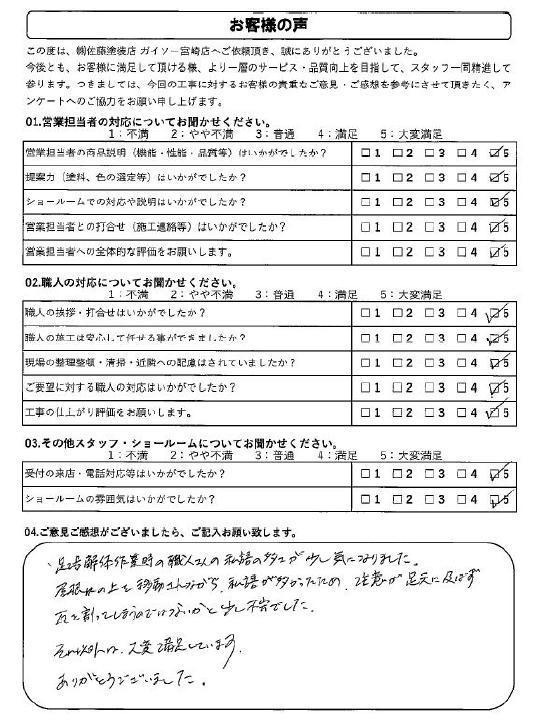 お客様の声
この度は、㈱佐藤塗装店 ガイソー宮崎店へご依頼頂き、誠にありがとうございました。
今後とも、お客様に満足して頂ける様、より一層のサービス・品質向上を目指して、スタッフ一同精進して
参ります。つきましては、今回の工事に対するお客様の貴重なご意見・ご感想を参考にさせて頂きたく、ア
ンケートへのご協力をお願い申し上げます。
01.営業担当者の対応についてお聞かせください。
1：不満 2：やや不満 3：普通 4：満足 5：大変満足
営業担当者の商品説明（機能・性能・品質等）はいかがでしたか？ □1 □2 □3 □4 ☑5
提案力（塗料、色の選定等）はいかがでしたか？ □1 □2 □3 □4 ☑5
ショールームでの対応や説明はいかがでしたか？ □1 □2 □3 □4 ☑5
営業担当者との打合せ（施工連絡等）はいかがでしたか？ □1 □2 □3 □4 ☑5
営業担当者への全体的な評価をお願いします。 □1 □2 □3 □4 ☑5
02.職人の対応についてお聞かせください。
1：不満 2：やや不満 3：普通 4：満足 5：大変満足
職人の挨拶・打合せはいかがでしたか？ □1 □2 □3 □4 ☑5
職人の施工は安心して任せる事ができましたか？ □1 □2 □3 □4 ☑5
現場の整理整頓・清掃・近隣への配慮はされていましたか？ □1 □2 □3 □4 ☑5
ご要望に対する職人の対応はいかがでしたか？ □1 □2 □3 □4 ☑5
工事の仕上がり評価をお願いします。 □1 □2 □3 □4 ☑5
03.その他スタッフ・ショールームについてお聞かせください。
1：不満 2：やや不満 3：普通 4：満足 5：大変満足
受付の来店・電話対応等はいかがでしたか？ □1 □2 □3 □4 ☑5
ショールームの雰囲気はいかがでしたか？ □1 □2 □3 □4 ☑5
04.ご意見ご感想がございましたら、ご記入お願い致します。
、足場解体作業時の職人さんの私語の多さが少し気になりました。
屋根の上を移動しながら、私語が多かったため、注意が足元に及ばず
瓦を割ってしまうのではないかと少し不安でした。
それ以外は、大変満足しています。
ありがとうございました。